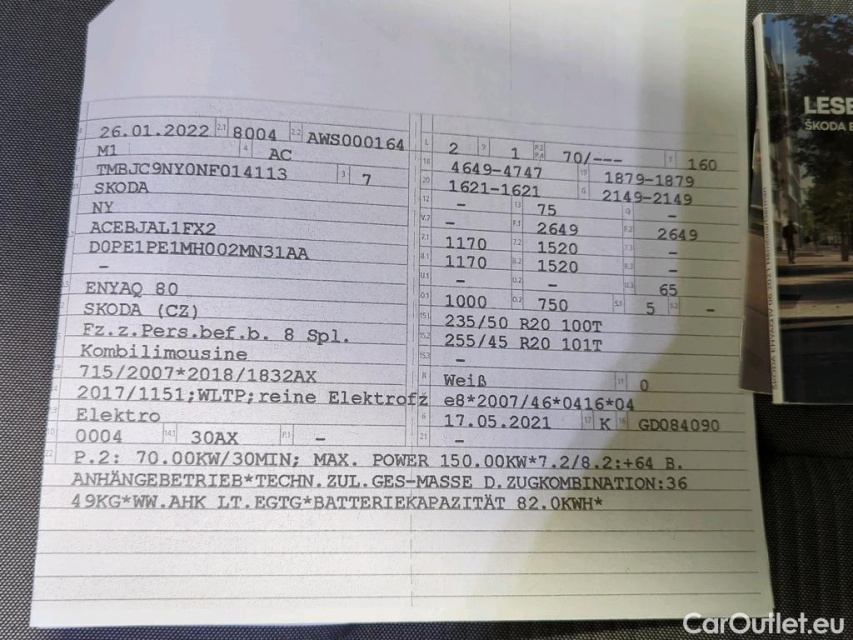 26.01.2022 2.1 8004 2.2 AWS000164
M1 4 AC
TMBJC9NY0NF014113 3 7
SKODA
NY
ACEBJAL1FX2
D0PE1PE1MH002MN31AA
–
ENYAQ 80
SKODA (CZ)
Fz.z.Pers.bef.b. 8 Spl.
Kombilimousine
715/2007*2018/1832AX
2017/1151;WLTP;reine Elektrofz
Elektro
0004 14.1 30AX P.1 –
L 2 9 1 70/--- T 160
18 4649-4747 19 1879-1879
20 1621-1621 G 2149-2149
12 – 13 75 Q –
V.7 – F.1 2649 F.2 2649
7.1 1170 7.2 1520 7.3 –
8.1 1170 8.2 1520 8.3 –
U.1 – U.2 – U.3 65
O.1 1000 O.2 750 S.1 5 S.2 –
15.1 235/50 R20 100T
15.2 255/45 R20 101T
15.3 –
R Weiß 11 0
e8*2007/46*0416*04
6 17.05.2021 17 K 16 GD084090
21 –
22 P.2: 70.00KW/30MIN; MAX. POWER 150.00KW*7.2/8.2:+64 B.
ANHÄNGEBETRIEB*TECHN.ZUL.GES-MASSE D.ZUGKOMBINATION:36
49KG*WW.AHK LT.EGTG*BATTERIEKAPAZITÄT 82.0KWH*
LESE
ŠKODA E
CarOutlet.eu